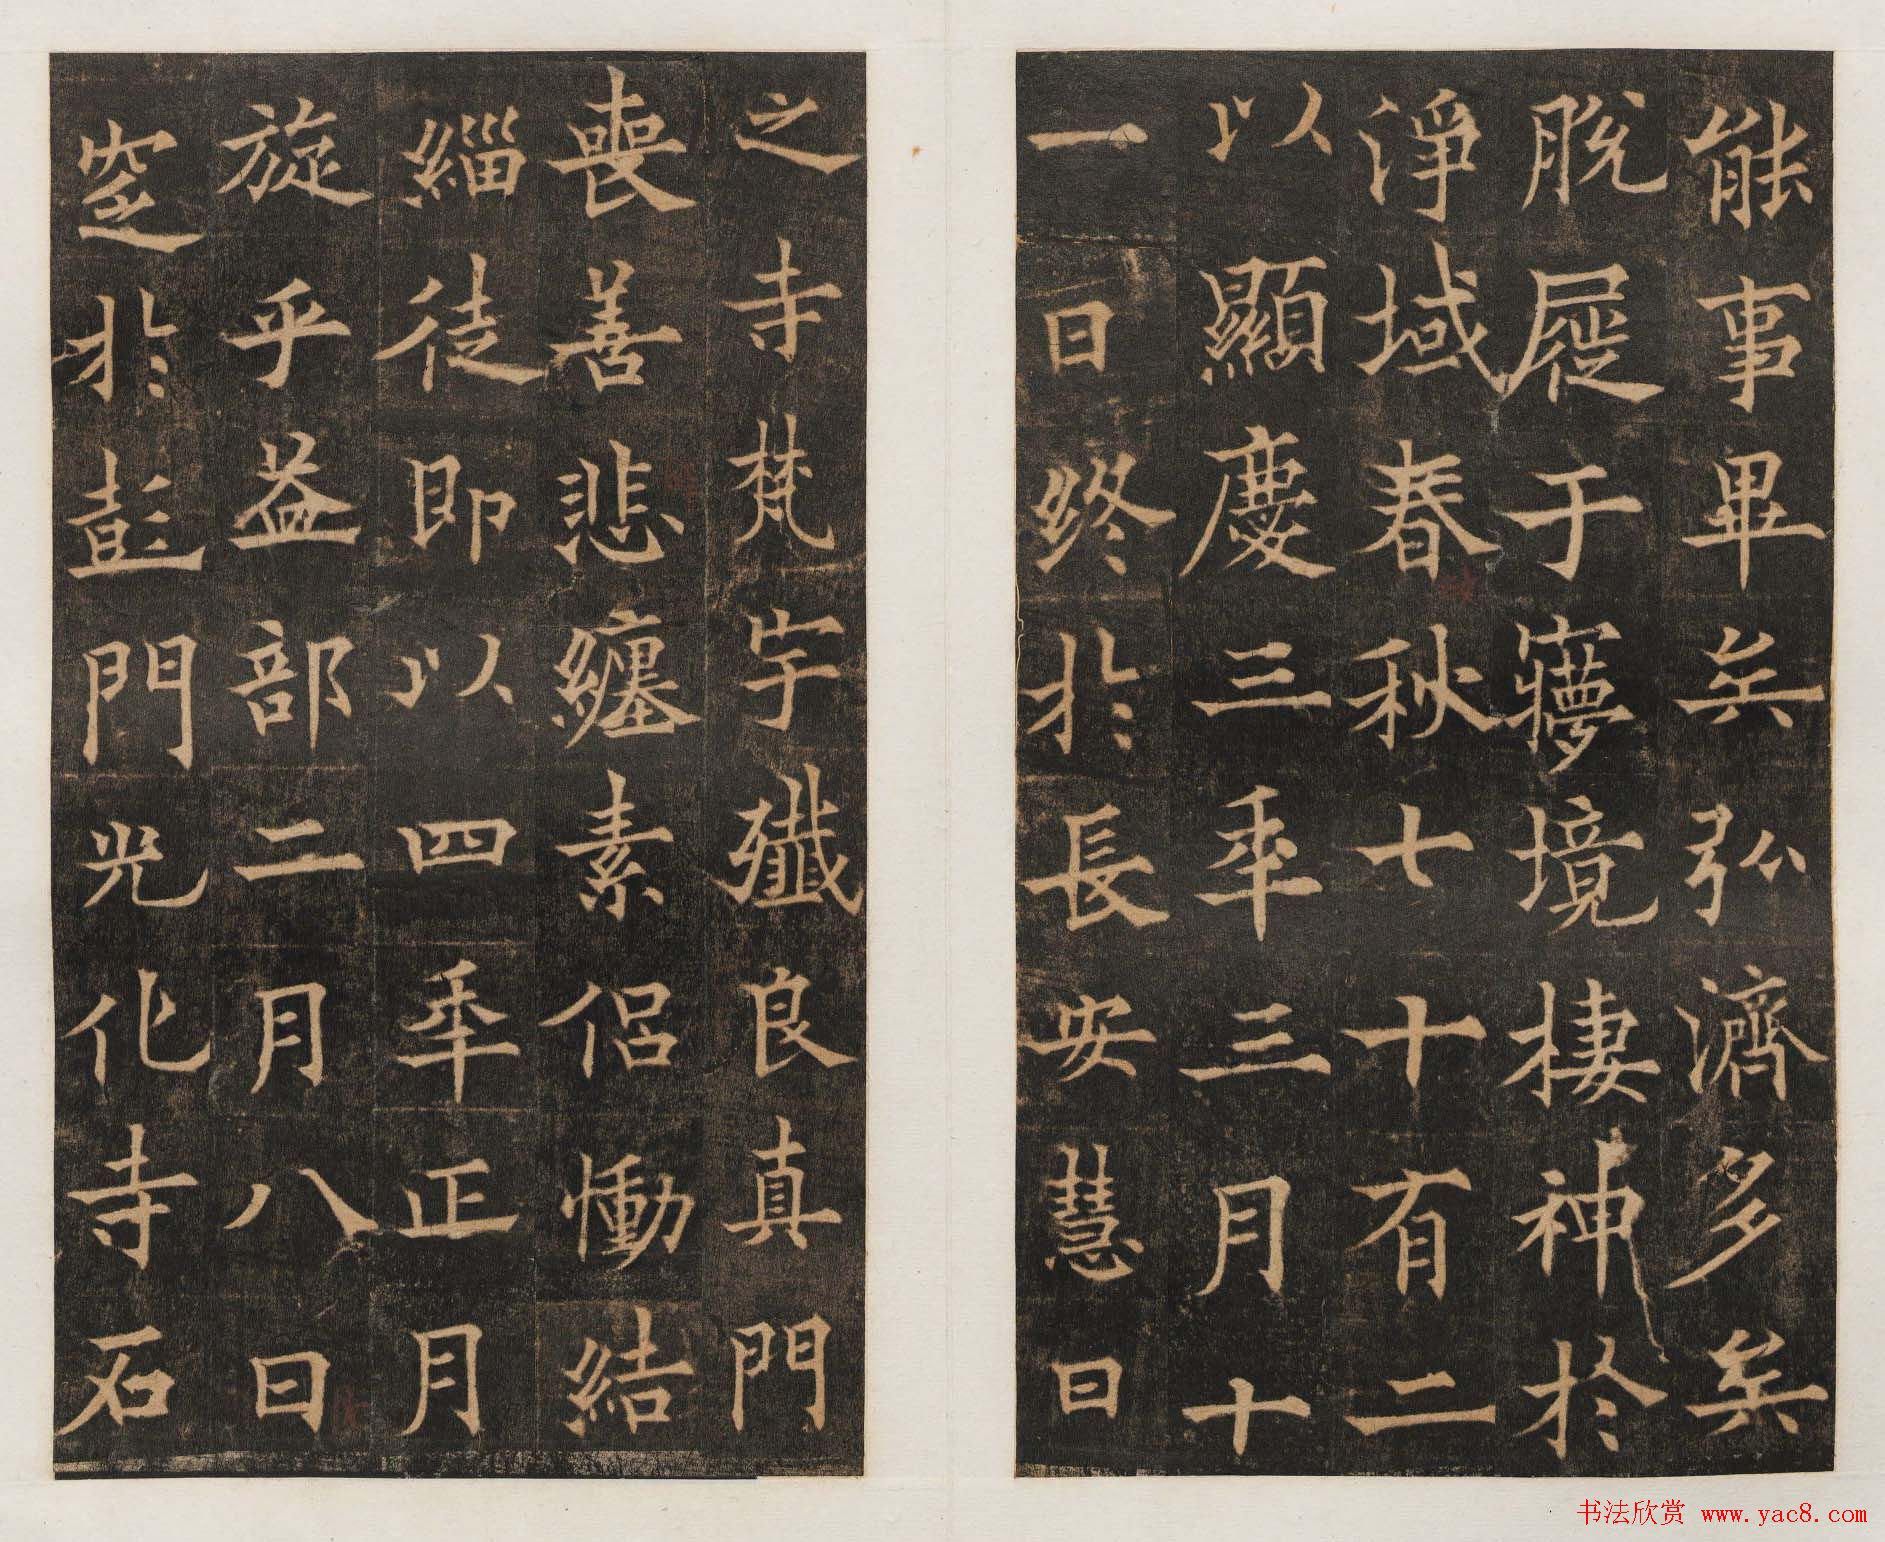 能事畢矣弘濟多矣
脫屣于㝱境棲神於
淨域春秋七十有二
以顯慶三年三月十
一日終於長安慧日
之寺梵宇殲良真門
喪善悲纏素侶慟結
緇徒即以四年正月
旋乎益部二月八日
窆於彭門光化寺石
书法欣赏 www.yac8.com